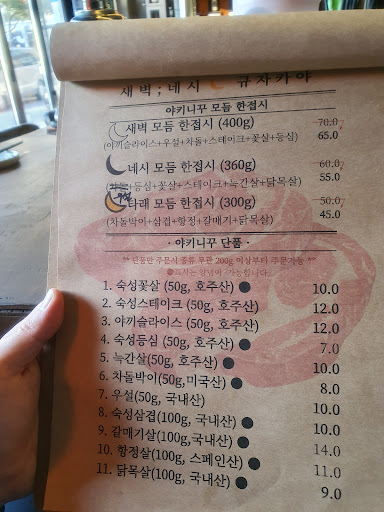 새벽;네시 규자카야
야키니꾸 모듬 한접시
새벽 모듬 한접시 (400g) 70.0
(야끼슬라이스+우설+차돌+스테이크+꽃살+등심) 65.0
네시 모듬 한접시 (360g) 60.0
+등심+꽃살+스테이크+늑간살+닭목살) 55.0
타래 모듬 한접시 (300g) 50.0
(차돌박이+삼겹+항정+갈매기+닭목살) 45.0
· 야키니꾸 단품 ·
** 단품만 주문시 종류 무관 200g 이상부터 주문가능 **
●표시는 양념이 가능합니다.
1. 숙성꽃살 (50g, 호주산) ● 10.0
2. 숙성스테이크 (50g, 호주산) 12.0
3. 야끼슬라이스 (50g, 호주산) 12.0
4. 숙성등심 (50g, 호주산) ● 7.0
5. 늑간살(50g, 호주산) ● 10.0
6. 차돌박이(50g,미국산) ● 8.0
7. 우설(50g, 국내산) 10.0
8. 숙성삼겹(100g, 국내산) ● 10.0
9. 갈매기살(100g,국내산) ● 14.0
10. 항정살(100g, 스페인산) ● 11.0
11. 닭목살(100g, 국내산) ● 9.0